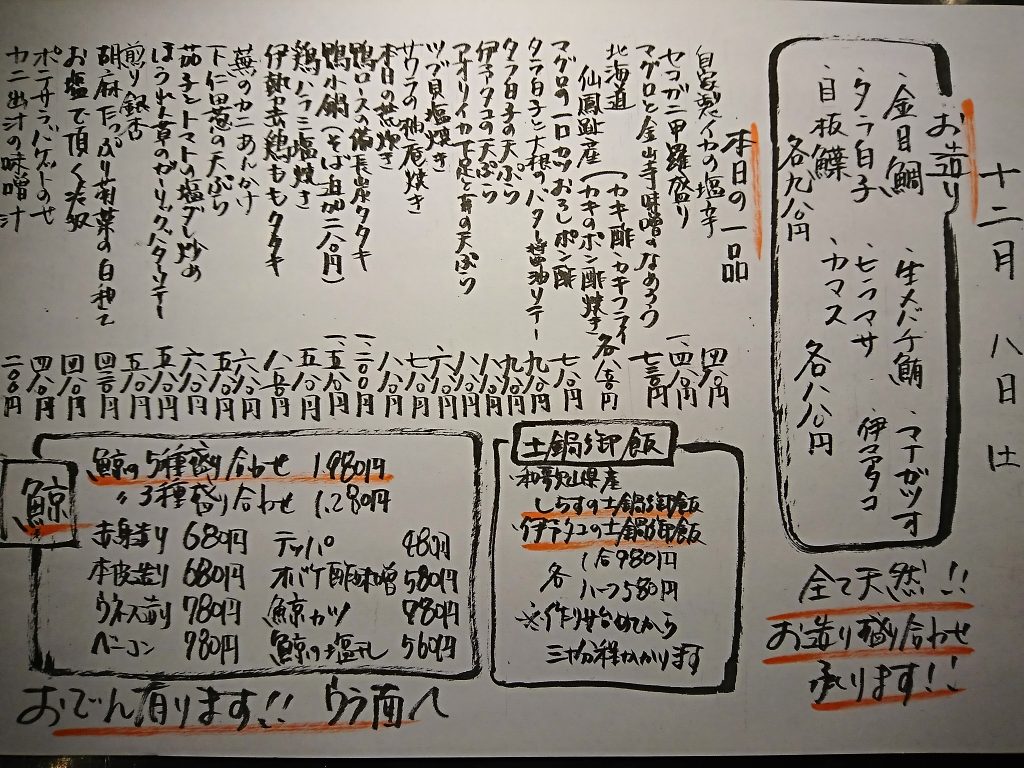 十二月八日 土
お造り
・金目鯛 ・生メバチ鮪 ・マナガツオ
・タラ白子 ・ヒラマサ ・伊マダコ
・目板鰈 ・カマス
各九八〇円 各八八〇円
全て天然!!
お造り盛り合わせ
承ります!!
本日の一品
自家製イカの塩辛 四八〇円
セコガニ甲羅盛り 一、四八〇円
マグロと金山寺味噌のなめろう 七三〇円
北海道
仙鳳趾産 (カキ酢・カキフライ
カキのポン酢焼き 各八五〇円
マグロの一口カツおろしポン酢 七八〇円
タラ白子と大根のバター醤油ソテー 九八〇円
タラ白子の天ぷら 九八〇円
伊マダコの天ぷら 八八〇円
アオリイカ下足と
ツブ貝塩焼き 六八〇円
サワラの柚庵焼き 七八〇円
本日の煮焼き 八八〇円
鴨ロースの備長炭タタキ 一、二〇〇円
鴨小鍋(そば追加二八〇円) 一、五八〇円
鶏ハラミ塩焼き 五八〇円
伊勢赤鶏ももタタキ 八五〇円
蕪のカニあんかけ 六八〇円
下仁田葱の天ぷら 五八〇円
茄子とトマトの塩ダレ炒め 六八〇円
ほうれん草のガーリックバターソテー 五八〇円
煎り銀杏 五八〇円
胡麻たっぷり菊菜の白和え 四三〇円
お塩で頂く冷奴 四八〇円
ポテサラバゲットのせ 四八〇円
カニ出汁の味噌汁 二〇〇円
土鍋御飯
和歌山県産
しらすの土鍋御飯
伊マダコの土鍋御飯
各 1合980円
ハーフ580円
※作り始めてから
三十分程かかります
鯨
鯨の5種盛り合わせ 1,980円
〃3種盛り合わせ 1,280円
赤身造り 680円 テッパ 480円
本皮造り 680円 オバケ酢味噌 580円
ウネス造り 780円 鯨カツ 780円
ベーコン 980円 鯨の塩タレ 560円
おでん有ります!! ウラ面へ